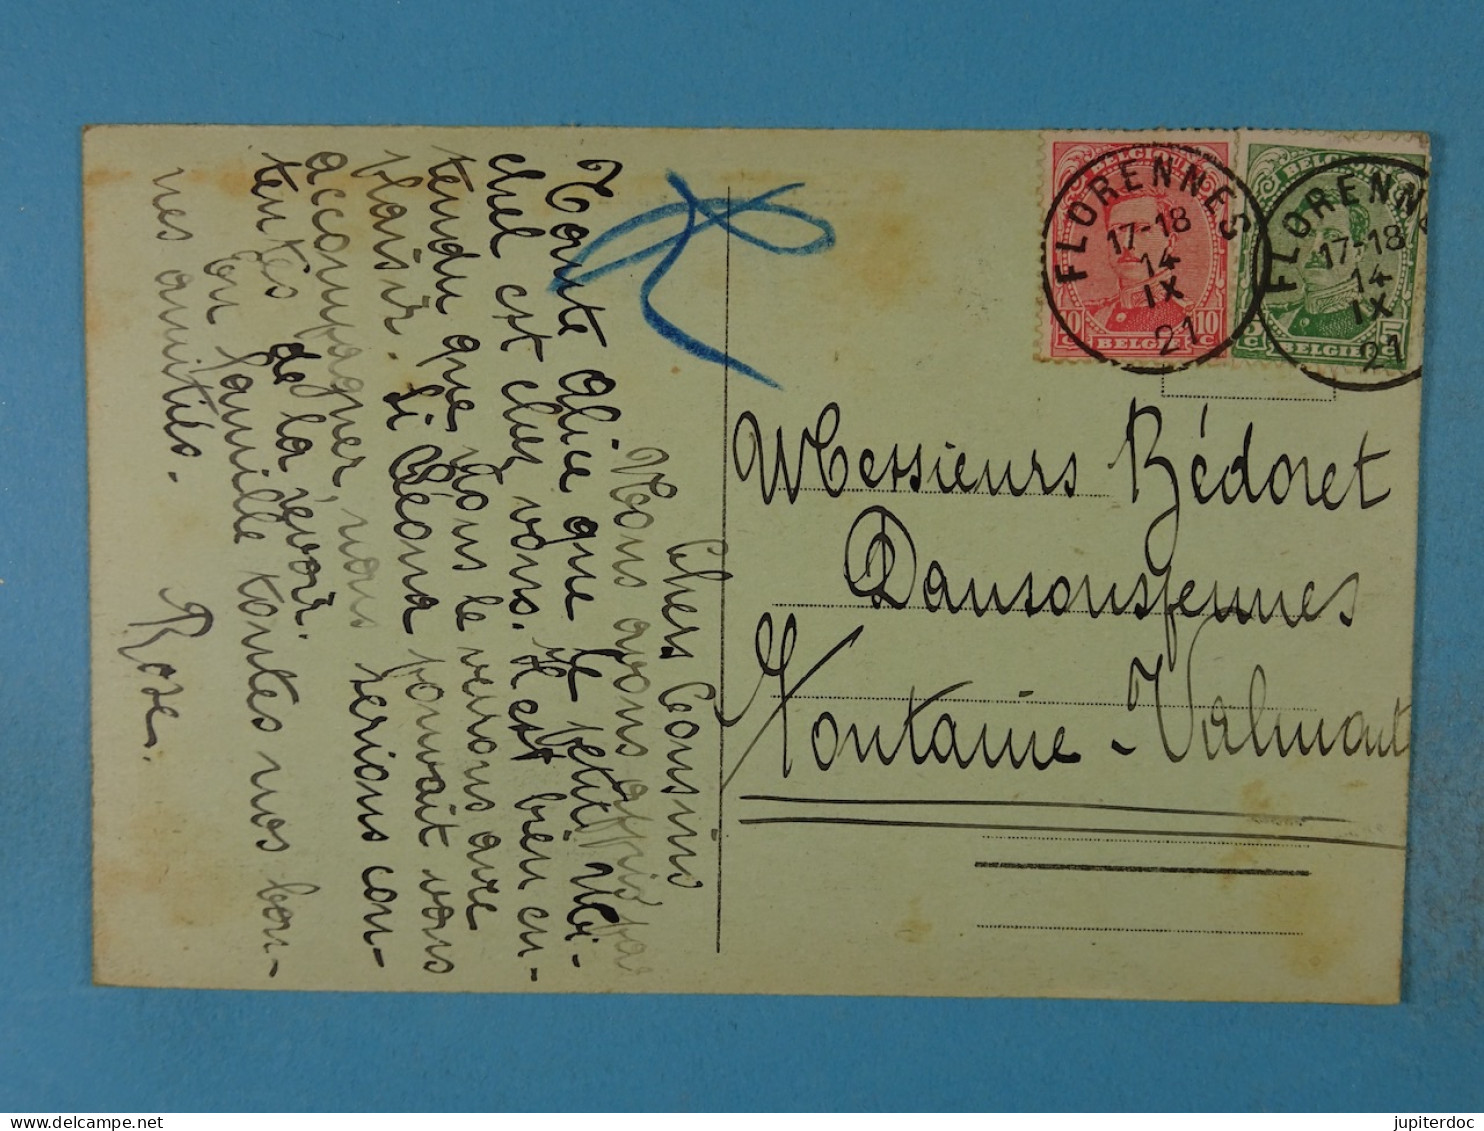 Chers Cousins
Nous avons appris par
Tante Alice que le petit Mi-
chel est chez vous. Il est bien en-
tendu que nous le verrons avec
plaisir. Si Léona pouvait vous
accompagner, nous serions con-
tentes de la revoir.
En famille toutes nos bon-
nes amitiés.
Rose.
BELGIQUE
10 C 10 C
BELGIE
BELGIQUE
5 C 5 C
BELGIE
FLORENNES
17-18
14
IX
21
FLORENNES
17-18
14
IX
21
Messieurs Bédoret
Fontaine-Valmont
jupiterdoc